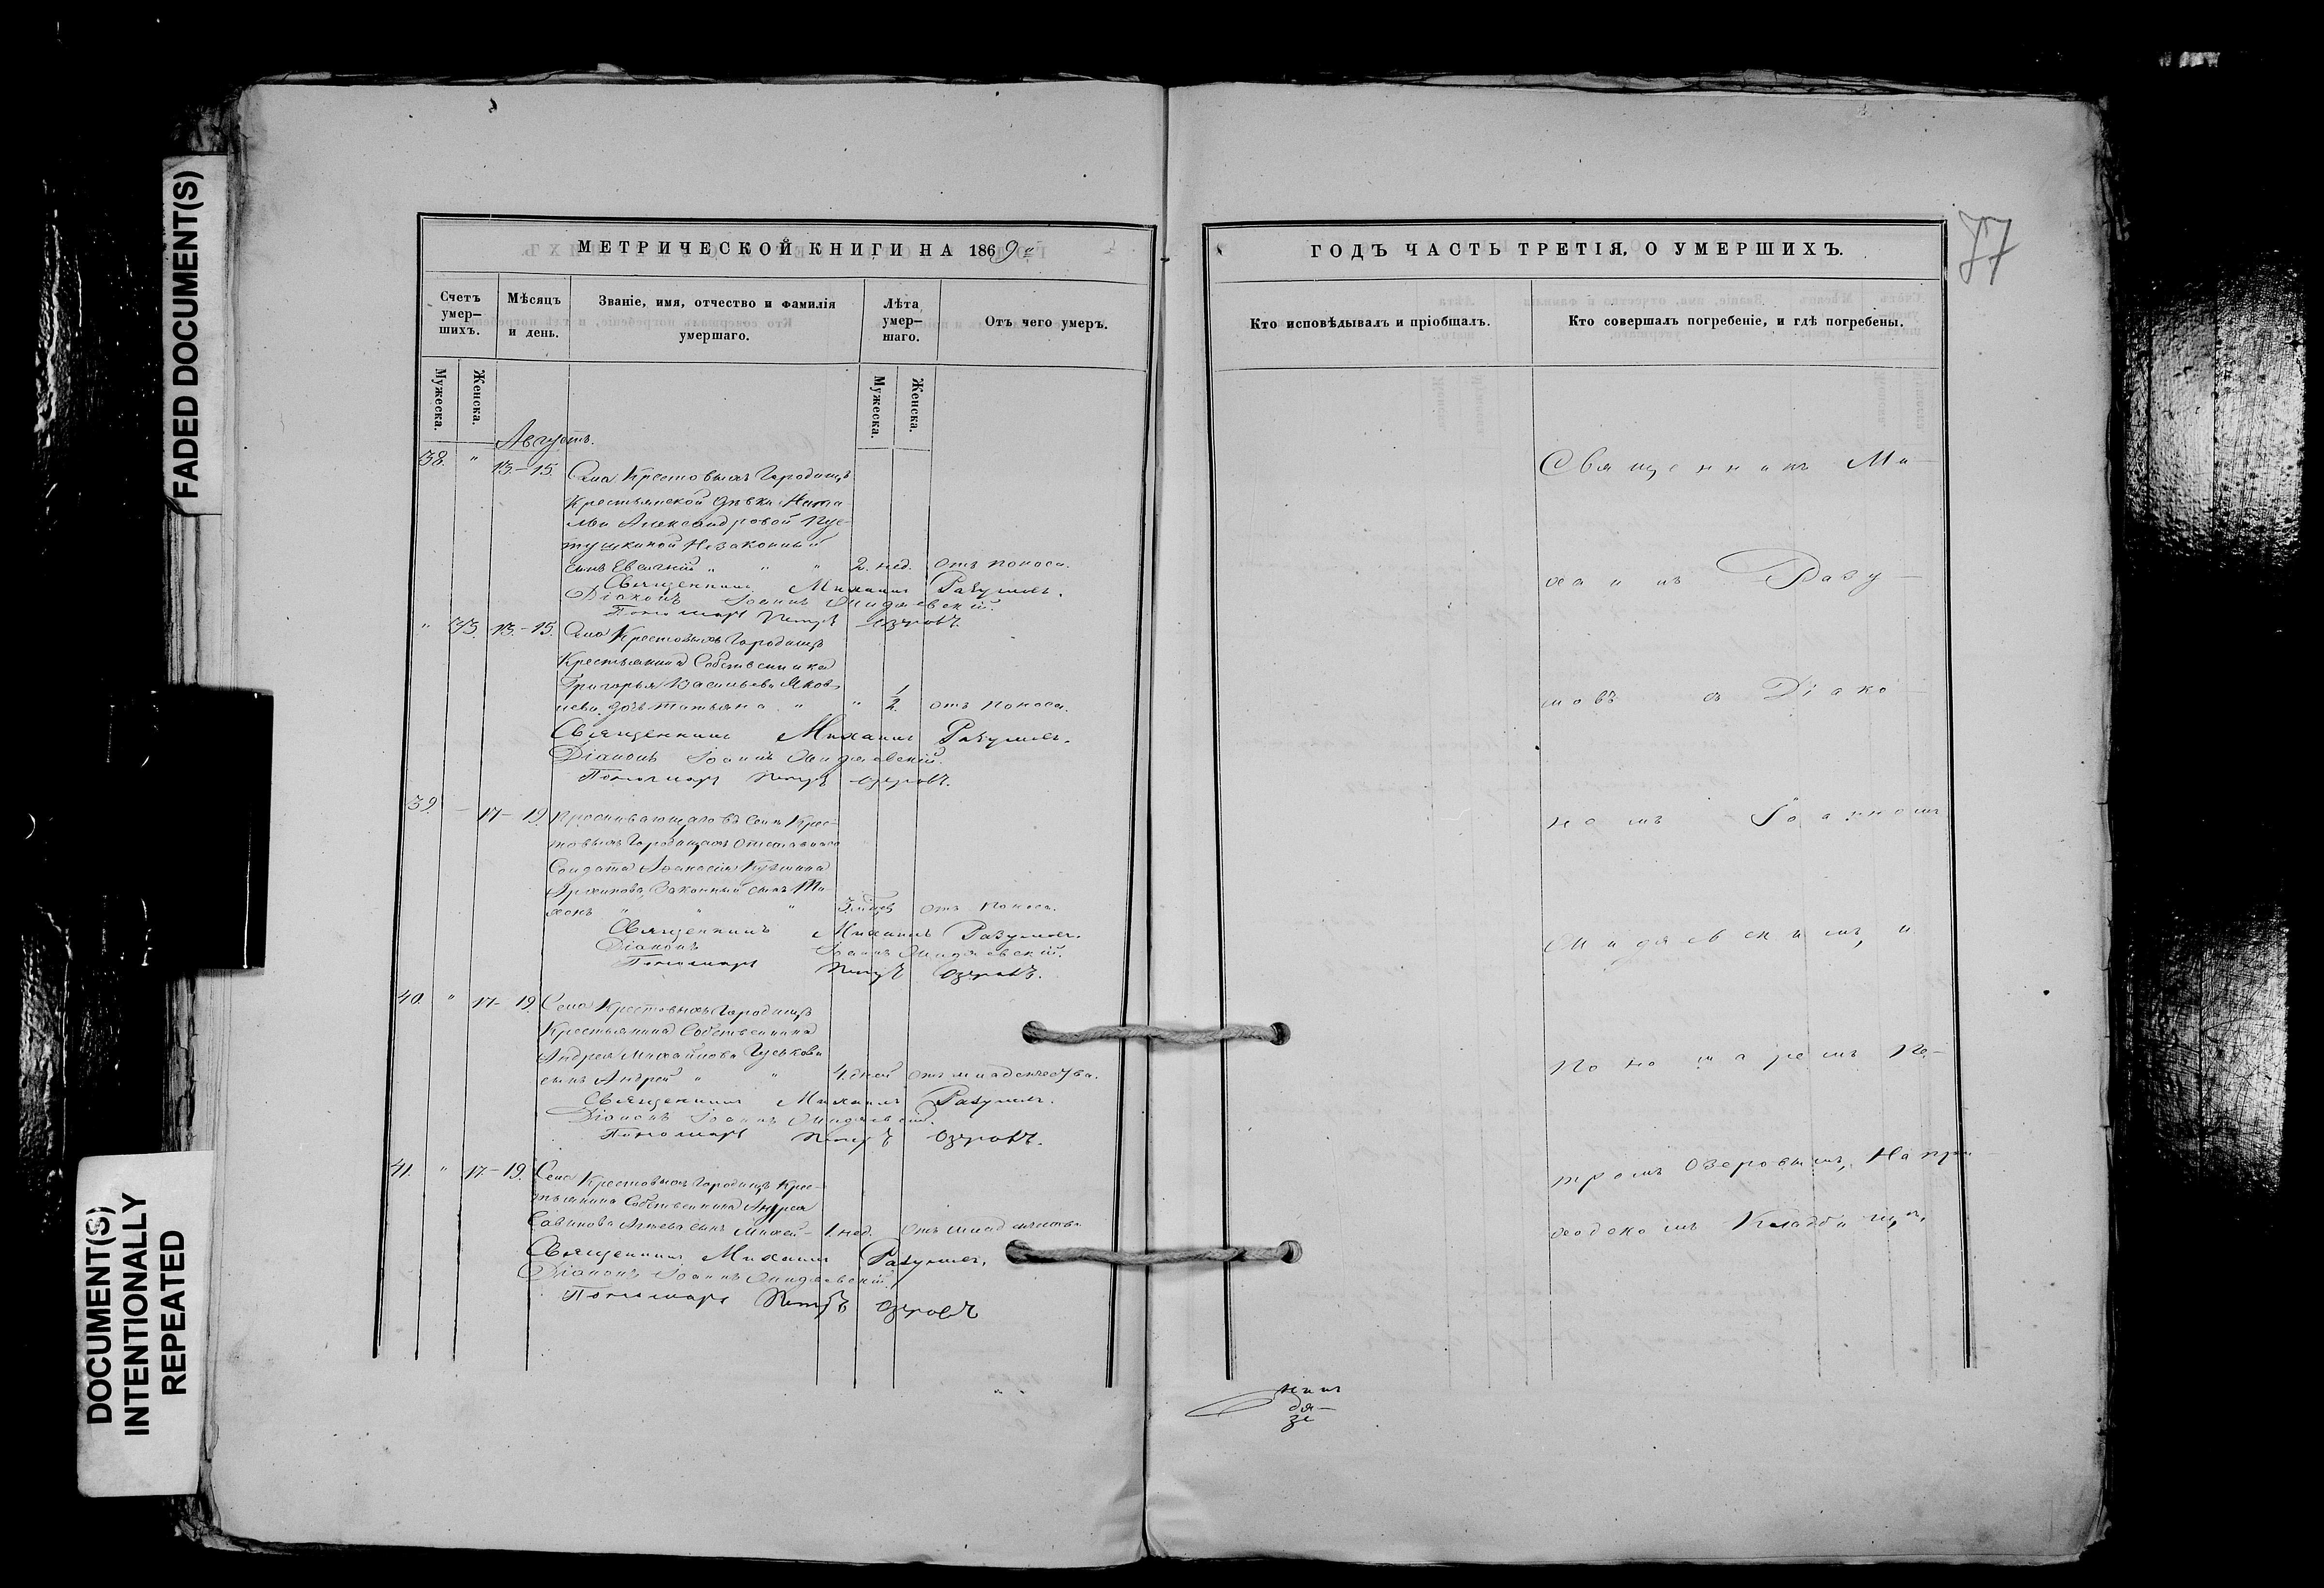 FADED DOCUMENT(S)
DOCUMENT(S)
INTENTIONALLY
REPEATED
МЕТРИЧЕСКОЙ КНИГИ НА 1869 го
Счетъ умер–шихъ.
Мѣсяцъ и день.
Званіе, имя, отчество и фамилія умершаго.
Лѣта умер–шаго.
Отъ чего умеръ.
Мужеска.
Женска.
Мужеска.
Женска.
Августъ.
38. " 13.–15. Села Крестовыхъ Городищъ
Крестьянской дѣвки Ната
льи Александровой Пус-
тушкиной Незаконный
сынъ Евсигній " " " 2. нед. отъ поноса.
Священникъ Михаилъ Разумовъ.
Діаконъ Іоаннъ
Пономарь Петръ Озеровъ.
" 35. 13.–15. Села Крестовыхъ Городищъ
Крестьянина Собственника
Григорья Васильева Яков-
лева дочь Татьяна. " " 1/2 отъ поноса.
Священникъ Михаилъ Разумовъ.
Діаконъ Іоаннъ
Пономарь Петръ Озеровъ.
39. – 17–19. Проживающаго въ Селѣ Крес-
товыхъ Городищахъ Отставнаго
Солдата Афанасія Кузмина
Законный сынъ Ти-
хонъ " " " отъ поноса.
Священникъ Михаилъ Разумовъ.
Діаконъ Іоаннъ
Пономарь Петръ Озеровъ.
40. " 17–19. Села Крестовыхъ Городищъ
Крестьянина Собственника
Андрея Михайлова Гуськова
сынъ Андрей " " 4. дней отъ младенчества.
Священникъ Михаилъ Разумовъ.
Діаконъ Іоаннъ
Пономарь Петръ Озеровъ.
41. " 17–19. Села Крестовыхъ Городищъ Крес-
тьянина Собственника Андрея
Савинова сынъ 1. нед. отъ младенчества
Священникъ Михаилъ Разумовъ.
Діаконъ Іоаннъ
Пономарь Петръ Озеровъ
ГОДЪ ЧАСТЬ ТРЕТІЯ, О УМЕРШИХЪ.
77
Кто исповѣдывалъ и пріобщалъ.
Кто совершалъ погребеніе, и гдѣ погребены.
Священникъ Ми–
хаилъ Разу–
мовъ съ Діако–
номъ Іоанномъ
и
Пономаремъ Пе–
тромъ Озеровымъ, На при–
ходскомъ Кладбищѣ.